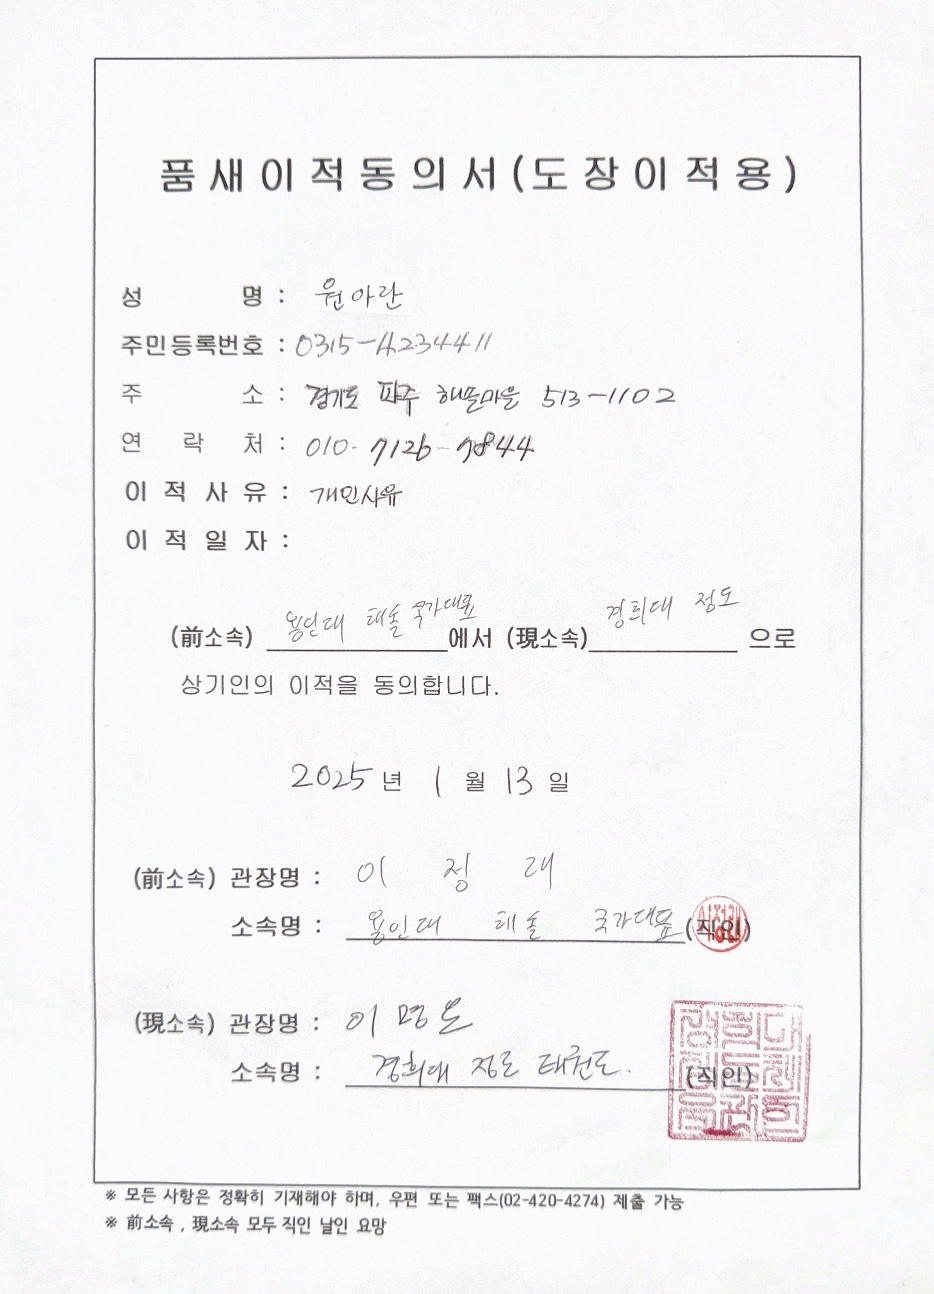 품새이적동의서(도장이적용)
성 명 : 원아란
주민등록번호 : 0315-4234411
주 소 : 경기도 파주 해솔마을 513-1102
연 락 처 : 010-7126-7844
이 적 사 유 : 개인사유
이 적 일 자 :
(前소속) 용인대 태솔 국가대표 에서 (現소속) 경희대 정도 으로
상기인의 이적을 동의합니다.
2025 년 1 월 13 일
(前소속) 관장명 : 이 정 래
소속명 : 용인대 태솔 국가대표 (직인)
(現소속) 관장명 : 이
소속명 : 경희대 정도 태권도. (직인)
※ 모든 사항은 정확히 기재해야 하며, 우편 또는 팩스(02-420-4274) 제출 가능
※ 前소속 , 現소속 모두 직인 날인 요망